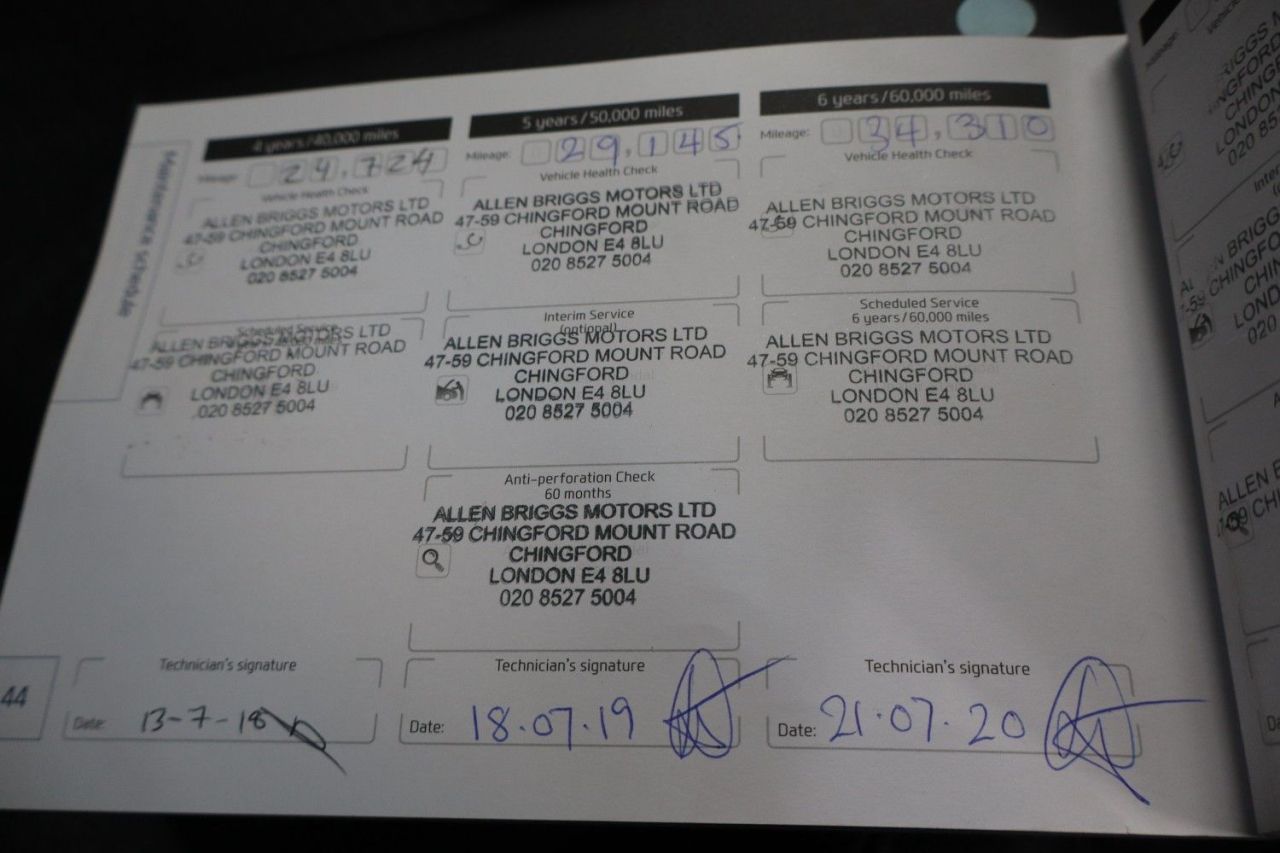 Maintenance schedule
4 years/40,000 miles
Mileage: 24,724
Vehicle Health Check
ALLEN BRIGGS MOTORS LTD
47-59 CHINGFORD MOUNT ROAD
CHINGFORD
LONDON E4 8LU
020 8527 5004
Scheduled Service
ALLEN BRIGGS MOTORS LTD
47-59 CHINGFORD MOUNT ROAD
CHINGFORD
LONDON E4 8LU
020 8527 5004
Technician's signature
Date: 13-7-18
5 years/50,000 miles
Mileage: 29,145
Vehicle Health Check
ALLEN BRIGGS MOTORS LTD
47-59 CHINGFORD MOUNT ROAD
CHINGFORD
LONDON E4 8LU
020 8527 5004
Interim Service
(optional)
ALLEN BRIGGS MOTORS LTD
47-59 CHINGFORD MOUNT ROAD
CHINGFORD
LONDON E4 8LU
020 8527 5004
Anti-perforation Check
60 months
ALLEN BRIGGS MOTORS LTD
47-59 CHINGFORD MOUNT ROAD
CHINGFORD
LONDON E4 8LU
020 8527 5004
Technician's signature
Date: 18.07.19
6 years/60,000 miles
Mileage: 34,310
Vehicle Health Check
ALLEN BRIGGS MOTORS LTD
47-59 CHINGFORD MOUNT ROAD
CHINGFORD
LONDON E4 8LU
020 8527 5004
Scheduled Service
6 years/60,000 miles
ALLEN BRIGGS MOTORS LTD
47-59 CHINGFORD MOUNT ROAD
CHINGFORD
LONDON E4 8LU
020 8527 5004
Technician's signature
Date: 21.07.20
44
Mileage: